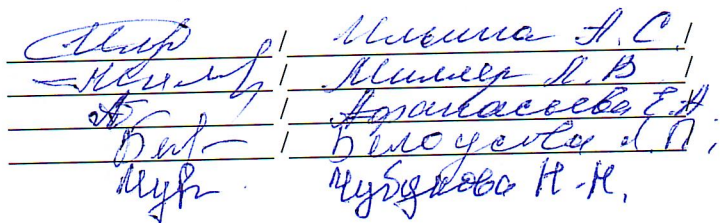 / Ильина А.С. /
/ Миллер Л.В /
/ Афанасьева Е.А
/ Белоусова Л.П.
Чубукова Н.Н.